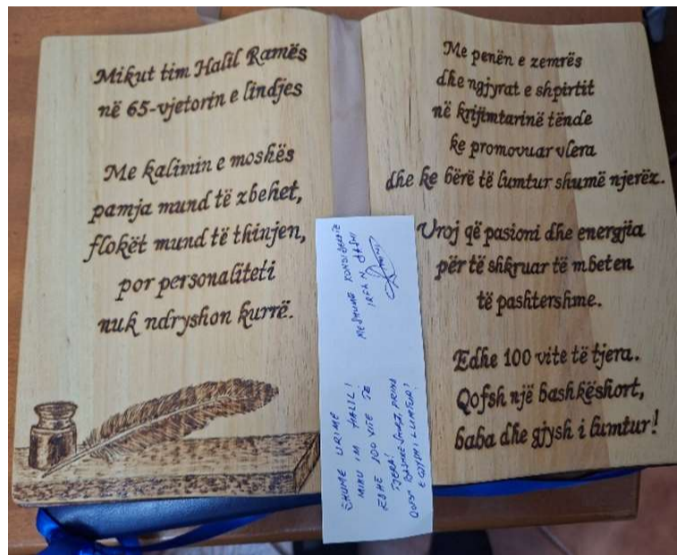 Mikut tim Halil Ramës
në 65-vjetorin e lindjes
Me kalimin e moshës
pamja mund të zbehet,
flokët mund të thinjen,
por personaliteti
nuk ndryshon kurrë.
Me penën e zemrës
dhe ngjyrat e shpirtit
në krijimtarinë tënde
ke promovuar vlera
dhe ke bërë të lumtur shumë njerëz.
Uroj që pasioni dhe energjia
për të shkruar të mbeten
të pashtershme.
Edhe 100 vite të tjera.
Qofsh një bashkëshort,
baba dhe gjysh i lumtur!
SHUMË URIME
MIKU IM HALIL!
EDHE 100 VITE TË
TJERA!
QOFSH BASHKËSHORT, PRIND
E GJYSH I LUMTUR!
ME SHUMË KONSIDERATË